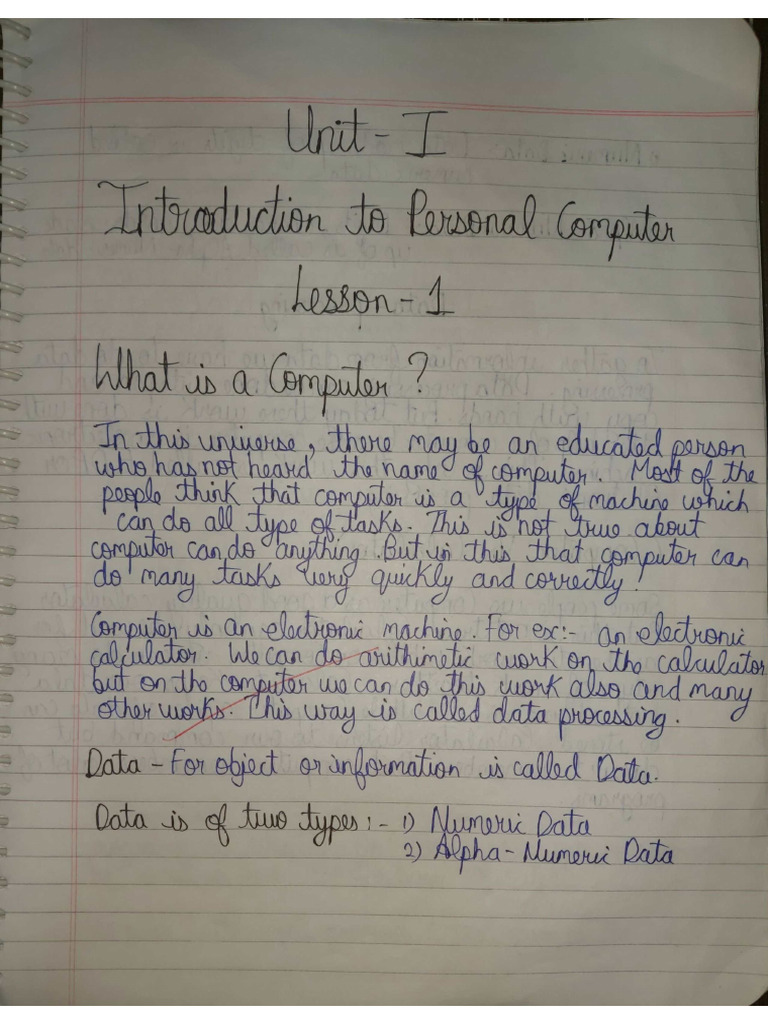 Unit - I
Introduction to Personal Computer
Lesson - 1
What is a Computer ?
In this universe, there may be an educated person
who has not heard the name of computer. Most of the
people think that computer is a type of machine which
can do all type of tasks. This is not true about
computer can do anything. But in this that computer can
do many tasks very quickly and correctly.
Computer is an electronic machine. For ex:- an electronic
calculator. We can do arithimetic work on the calculator
but on the computer we can do this work also and many
other works. This way is called data processing.
Data - For object or information is called Data.
Data is of two types :- 1) Numeric Data
2) Alpha - Numeric Data